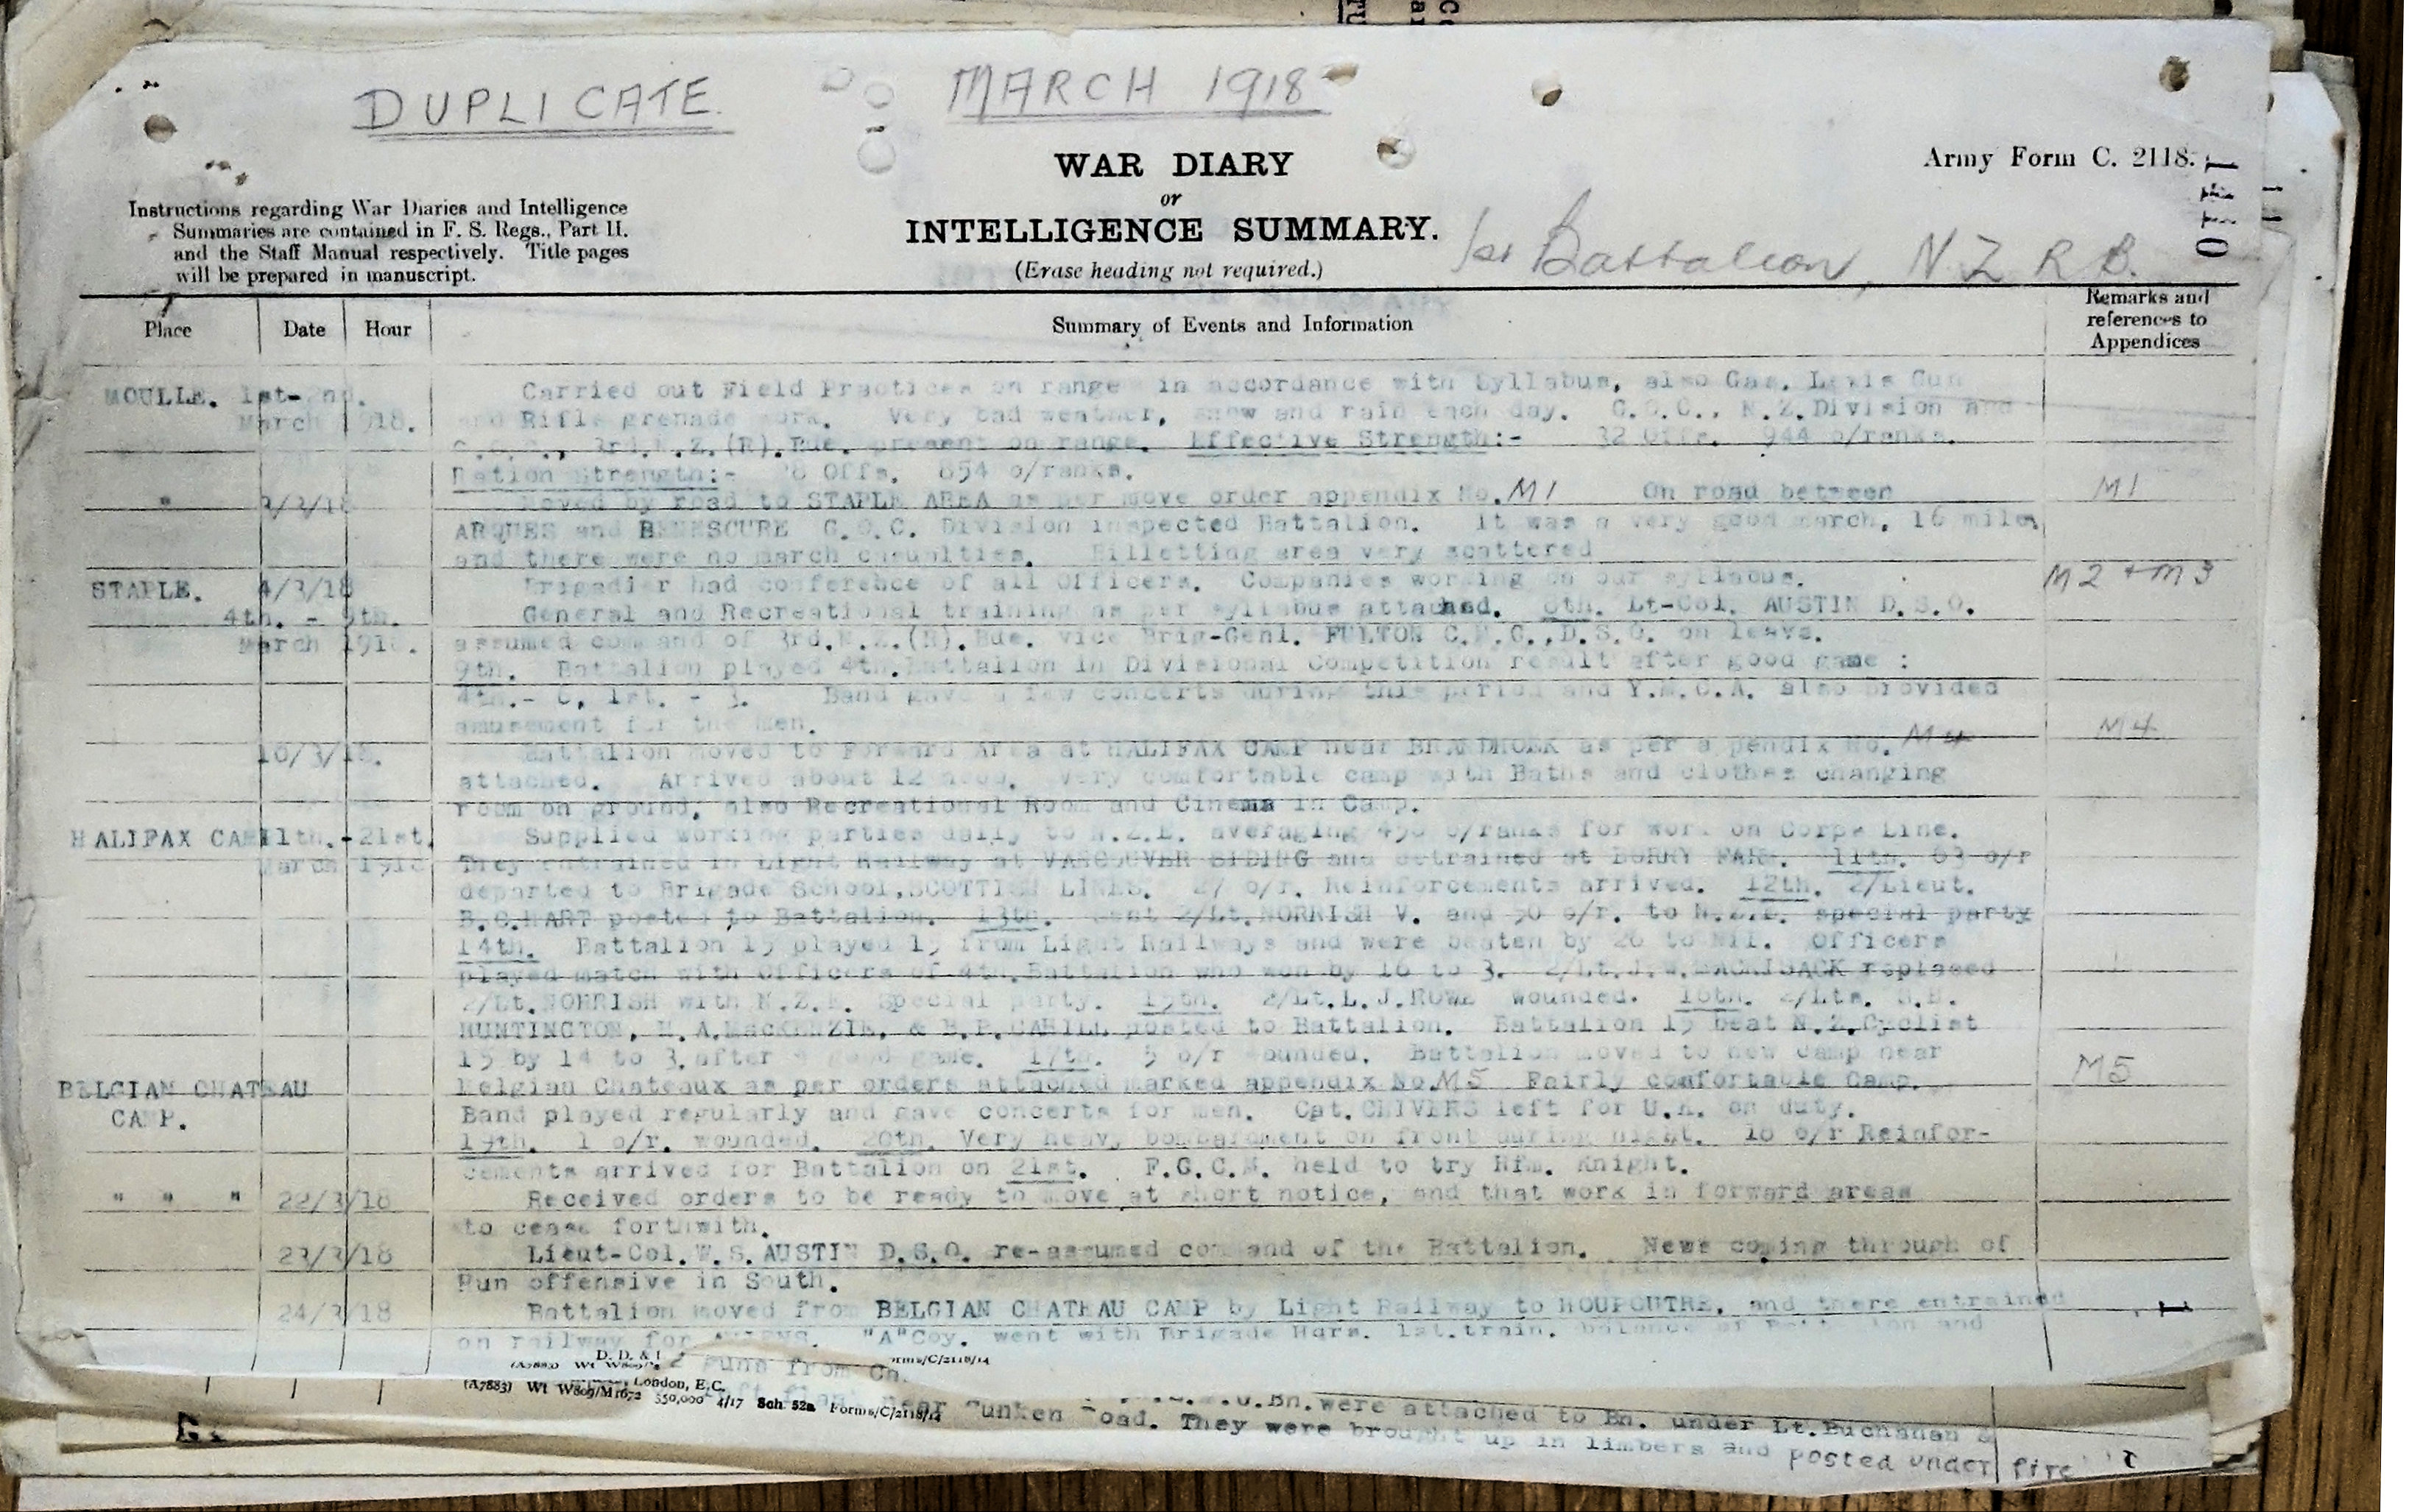 DUPLICATE.
MARCH 1918
WAR DIARY
or
INTELLIGENCE SUMMARY.
(Erase heading not required.)
Army Form C. 2118.
Instructions regarding War Diaries and Intelligence
Summaries are contained in F. S. Regs., Part II.
and the Staff Manual respectively. Title pages
will be prepared in manuscript.
1st Battalion, N Z R B.
Place Date Hour Summary of Events and Information Remarks and references to Appendices
MOULLE. 1st-2nd. Carried out Field Practices on range in accordance with Syllabus, also Gas, Lewis Gun
March 1918. and Rifle grenade work. Very bad weather, snow and rain each day. G.O.C., N.Z.Division and
G.O.C., 3rd.N.Z.(R).Bde. present on range. Effective Strength:- 32 Offs. 944 o/ranks.
Ration Strength:- 28 Offs. 854 o/ranks.
" 3/3/18 Moved by road to STAPLE AREA as per move order appendix No. M1 On road between M1
ARQUES and G.O.C. Division inspected Battalion. It was a very good march, 16 miles
and there were no march casualties. Billetting area very scattered
STAPLE. 4/3/18 Brigadier had conference of all Officers. Companies working on our syllabus. M2 + M3
4th. - 9th. General and Recreational training as per syllabus attached. Lt-Col. AUSTIN D.S.O.
March 1918. assumed command of 3rd.N.Z.(R).Bde. vice Brig-Genl. FULTON C.M.G.,D.S.O. on leave.
9th. Battalion played 4th.Battalion in Divisional Competition result after good game :
4th.- 1st. - 3. Band gave a few concerts during this period and Y.M.C.A. also provided
amusement for the men.
10/3/18. Battalion moved to Forward Area at HALIFAX CAMP near BRANDHOEK as per appendix No. M4 M4
attached. Arrived about 12 noon. Very comfortable camp with Baths and clothes changing
room on ground, also Recreational Room and Cinema in Camp.
HALIFAX CAMP 11th.-21st. Supplied working parties daily to N.Z.E. averaging 450 o/ranks for work on Corps Line.
March 1918 They entrained in Light Railway at VANCOUVER SIDING and detrained at DORRY FARM. 11th. 63 o/r
departed to Brigade School,SCOTTISH LINES. 27 o/r. Reinforcements arrived. 12th. 2/Lieut.
B.C.HART posted to Battalion. 13th. Sent 2/Lt.NORRISH V. and 50 o/r. to N.Z.E. special party
14th. Battalion 15 played 15 from Light Railways and were beaten by 26 to Nil. Officers
played match with Officers of 4th.Battalion who won by 16 to 3. 2/Lt. replaced
2/Lt.NORRISH with N.Z.E. special party. 15th. 2/Lt.L.J.ROWE wounded. 16th. 2/Lts.
HUNTINGTON, M.A.MacKENZIE, & B.P.CAHILL posted to Battalion. Battalion 15 beat N.Z.Cyclist
15 by 14 to 3.after a good game. 17th. 5 o/r wounded. Battalion moved to new camp near
BELGIAN CHATEAU Belgian Chateaux as per orders attached marked appendix No. M5 Fairly comfortable Camp. M5
CAMP. Band played regularly and gave concerts for men. Cpt.CHIVERS left for U.K. on duty.
19th. 1 o/r. wounded. 20th. Very heavy bombardment on front during night. 18 o/r Reinfor-
cements arrived for Battalion on 21st. F.G.C.M. held to try Rfm. Knight.
" " " 22/3/18 Received orders to be ready to move at short notice, and that work in forward areas
to cease forthwith.
23/3/18 Lieut-Col.W.S.AUSTIN D.S.O. re-assumed command of the Battalion. News coming through of
Hun offensive in South.
24/3/18 Battalion moved from BELGIAN CHATEAU CAMP by Light Railway to HOUPOUTRE, and there entrained
on railway for "A"Coy. went with Brigade Hqrs. 1st.train. balance of Battalion and
guns from
D. D. & L., London, E.C.
(A7883) Wt W809/M1672 350,000 4/17 Sch. 52a Forms/C/2118/14
near Sunken Road. They were brought up in limbers and posted under fire
Bn.were attached to Bn. under Lt.Buchanan &